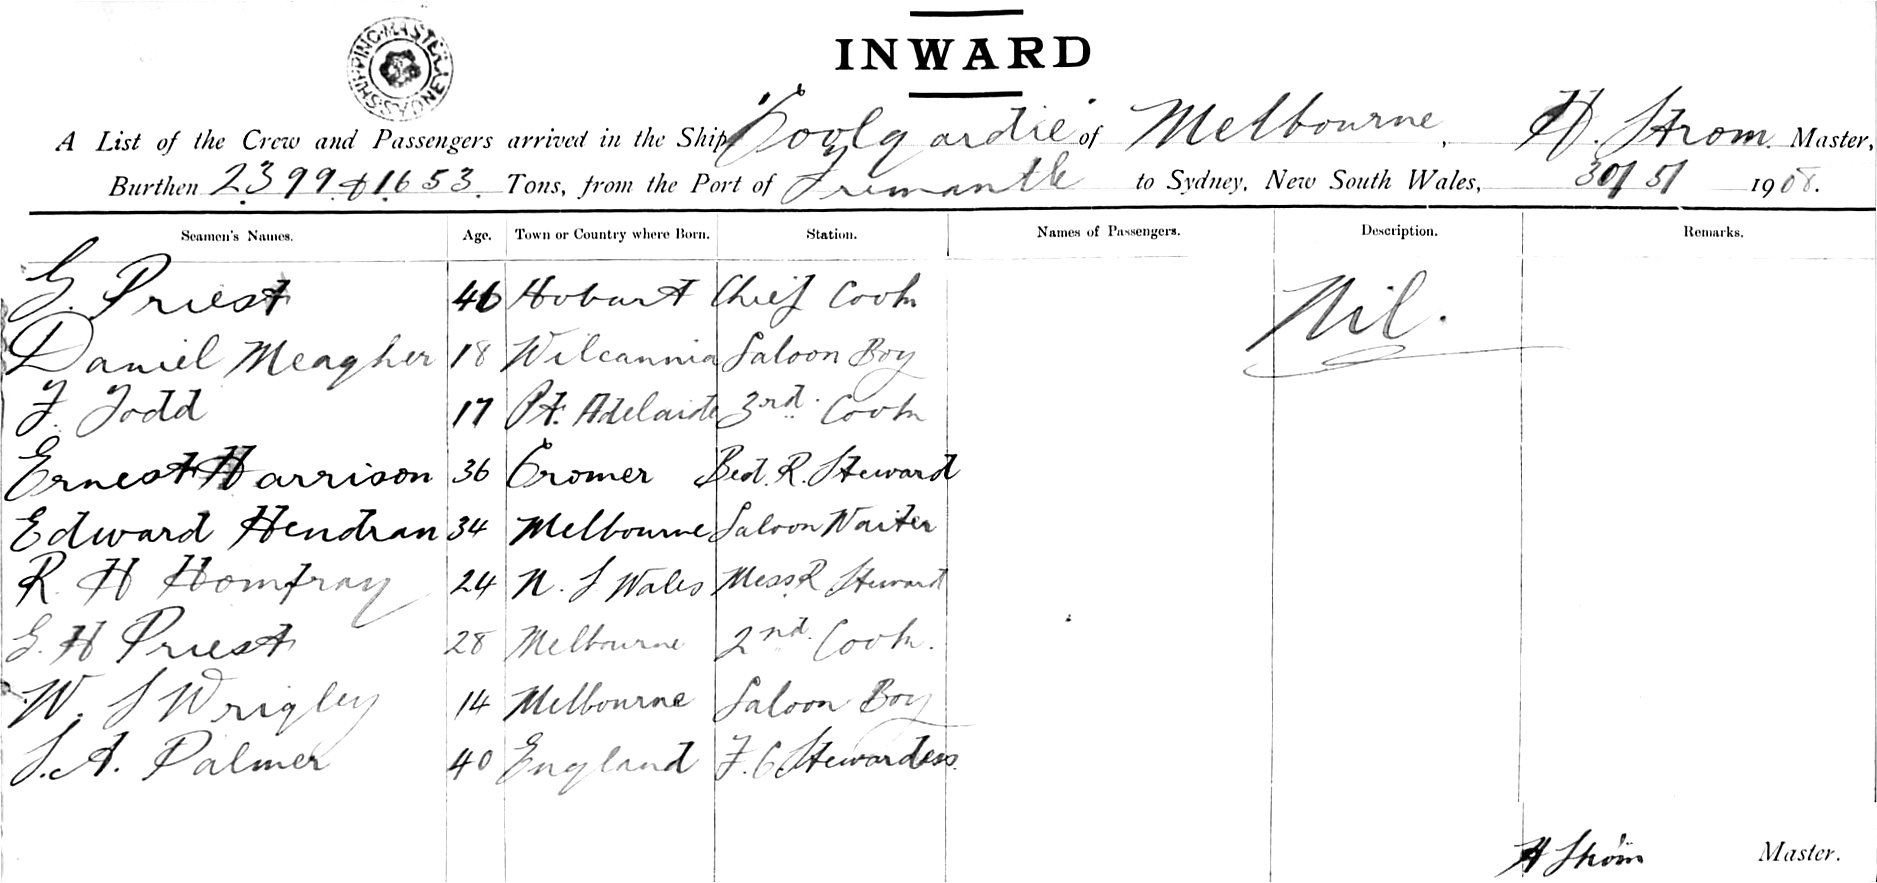 INWARD
SHIPPING MASTER SYDNEY
A List of the Crew and Passengers arrived in the Ship "Coolgardie" of Melbourne, H. Strom. Master,
Burthen 2399 & 1653 Tons, from the Port of Fremantle to Sydney, New South Wales, 30/5/1908.
Seamen's Names. Age. Town or Country where Born. Station. Names of Passengers. Description. Remarks.
G. Priest 46 Hobart Chief Cook Nil.
Daniel Meagher 18 Wilcannia Saloon Boy
F. Todd 17 Pt. Adelaide 3rd. Cook
Ernest Harrison 36 Cromer Bed. R. Steward
Edward Hendran 34 Melbourne Saloon Waiter
R. H Homfray 24 N. S Wales Mess R Steward
G. H Priest 28 Melbourne 2nd. Cook.
W. S Wrigley 14 Melbourne Saloon Boy
S. A. Palmer 40 England F. C Stewardess.
H Strom Master.